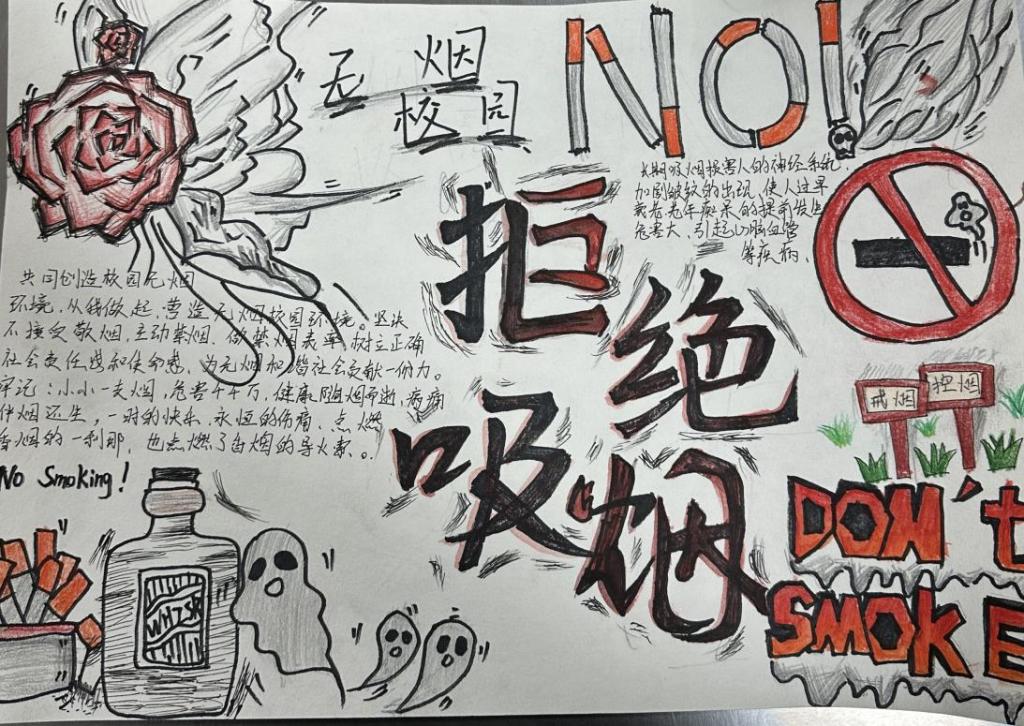 无烟
校园
NO!
长期吸烟损害人的神经系统,
加剧皱纹的出现,使人过早
衰老,老年痴呆的提前发生
危害大,引起心脑血管
等疾病、
拒绝
吸烟
共同创造校园无烟
环境,从我做起,营造无烟校园环境。坚决
不接受敬烟,主动禁烟、做禁烟表率,树立正确
社会责任感和使命感,为无烟和谐社会贡献一份力。
牢记:小小一支烟,危害千千万,健康随烟而逝,病痛
伴烟还生,一时的快乐,永恒的伤痛、点燃
香烟的一刹那,也点燃了自焚的导火索。
戒烟
控烟
No Smoking!
WHISR
DON't
SMOKE